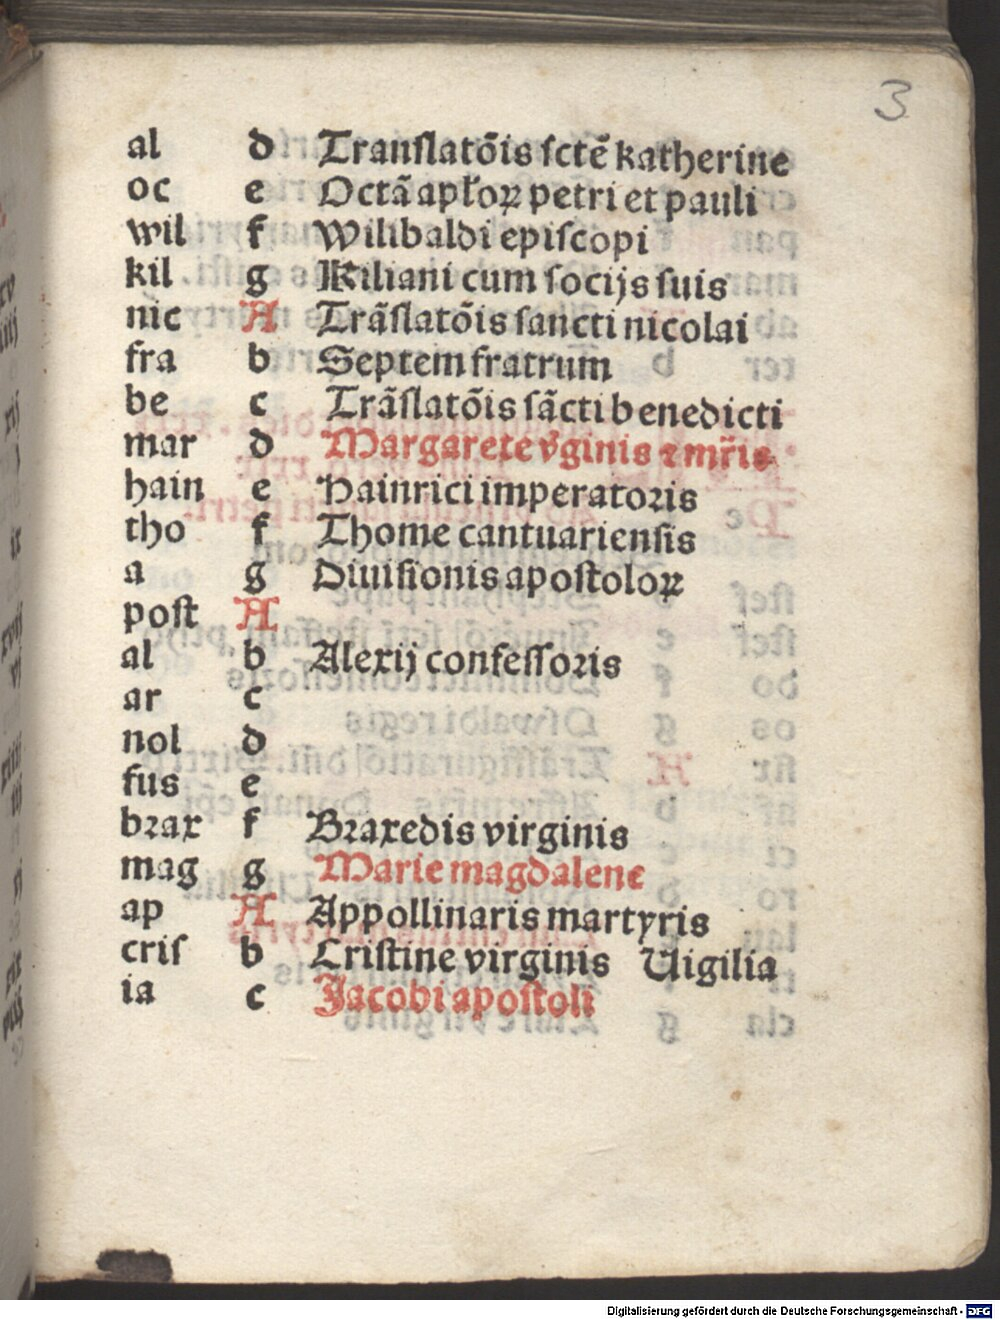 3
al d Tranſlatõis ſctẽ katherine
oc e Octã apl'oꝝ petri et pauli
wil f Wilibaldi epiſcopi
kil g Kiliani cum ſocijs ſuis
nic A Trãſlatõis ſancti nicolai
fra b Septem fratrum
be c Trãſlatõis ſãcti benedicti
mar d Margarete v̄ginis ⁊ mr̃is
hain e Hainrici imperatoꝛis
tho f Thome cantuarienſis
a g Diuiſionis apoſtoloꝝ
poſt A
al b Alexij confeſſoꝛis
ar c
nol d
fus e
bꝛax f Bꝛaxedis virginis
mag g Marie magdalene
ap A Appollinaris martyris
criſ b Criſtine virginis Uigilia
ia c Jacobi apoſtoli
Digitalisierung gefördert durch die Deutsche Forschungsgemeinschaft - DFG